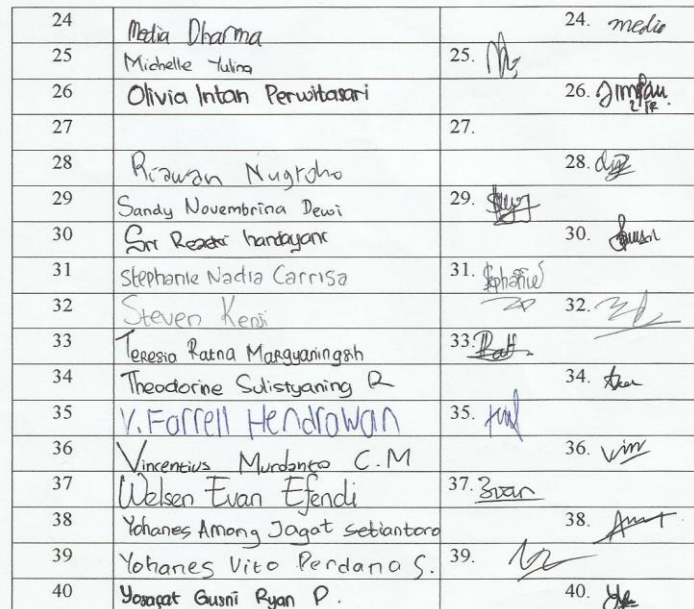 24 Media Dharma 24. media
25 Michelle Yulina 25.
26 Olivia Intan Perwitasari 26.
27 27.
28 Riawan Nugroho 28.
29 Sandy Novembrina Dewi 29.
30 Sri Rezeki handayani 30.
31 Stephanie Nadia Carrisa 31. Stephanie
32 Steven Kensi 32.
33 Teresia Ratna Margyaningsih 33.
34 Theodorine Sulistyaning R 34.
35 V. Farrell Hendrawan 35.
36 Vincentius Murdanto C.M 36. Vin
37 Welsen Evan Efendi 37. Evan
38 Yohanes Among Jagat setiantoro 38.
39 Yohanes Vito Perdana S. 39.
40 Yosafat Gusni Ryan P. 40.